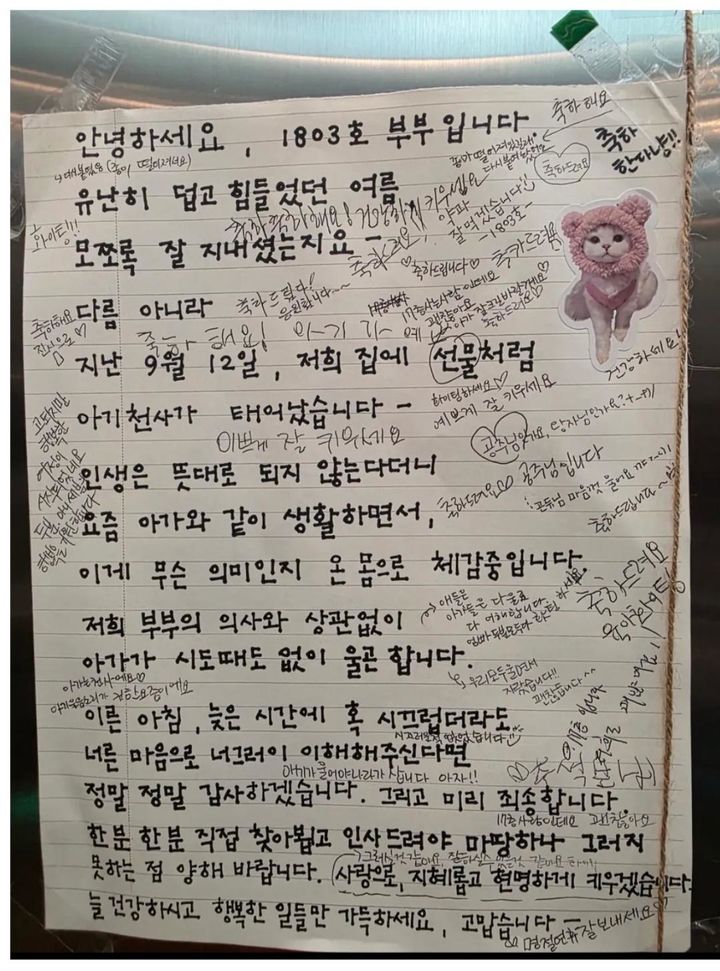 안녕하세요, 1803호 부부입니다
축하해요
축하
한다냥!!
축하드려요
다시 붙여 놨어요
유난히 덥고 힘들었던 여름
화이팅!!
잘 먹겠습니다
-1803호-
모쪼록 잘 지내셨는지요-
축하드려요
축하드립니다♡
축하드려요
다름 아니라
축하드립니다!
응원합니다~~
축하해요
진심으로♡
축하드려요♡
지난 9월 12일, 저희 집에 선물처럼
건강하세요!
화이팅하세요♡
예쁘게 잘 키우세요
아기천사가 태어났습니다-
이쁘게 잘 키우세요
공주님인가요, 왕자님인가요?
인생은 뜻대로 되지 않는다더니
공주님입니다
축하드려요♡♡
요즘 아가와 같이 생활하면서,
축하드립니다~
이게 무슨 의미인지 온 몸으로 체감중입니다
축하드려요
저희 부부의 의사와 상관없이
애들은
아가들은 다 울죠
다 이해합니다
아가가 시도때도 없이 울곤 합니다.
우리 모두 울면서
자랐습니다!!
괜찮습니다^^
이른 아침, 늦은 시간에 혹 시끄럽더라도
너른 마음으로 너그러이 이해해주신다면
아기가 울어야 나라가 삽니다 아자!!
정말 정말 감사하겠습니다. 그리고 미리 죄송합니다
17층 사람인데요 괜찮아요
한분 한분 직접 찾아뵙고 인사드려야 마땅하나 그러지
못하는 점 양해 바랍니다. 사랑으로, 지혜롭고 현명하게 키우겠습니다.
늘 건강하시고 행복한 일들만 가득하세요, 고맙습니다-
명절연휴 잘보내세요